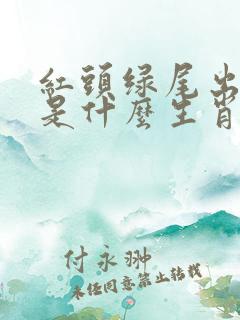 紅頭绿尾出
是什麼生肖
付永翀
未经同意禁止转载